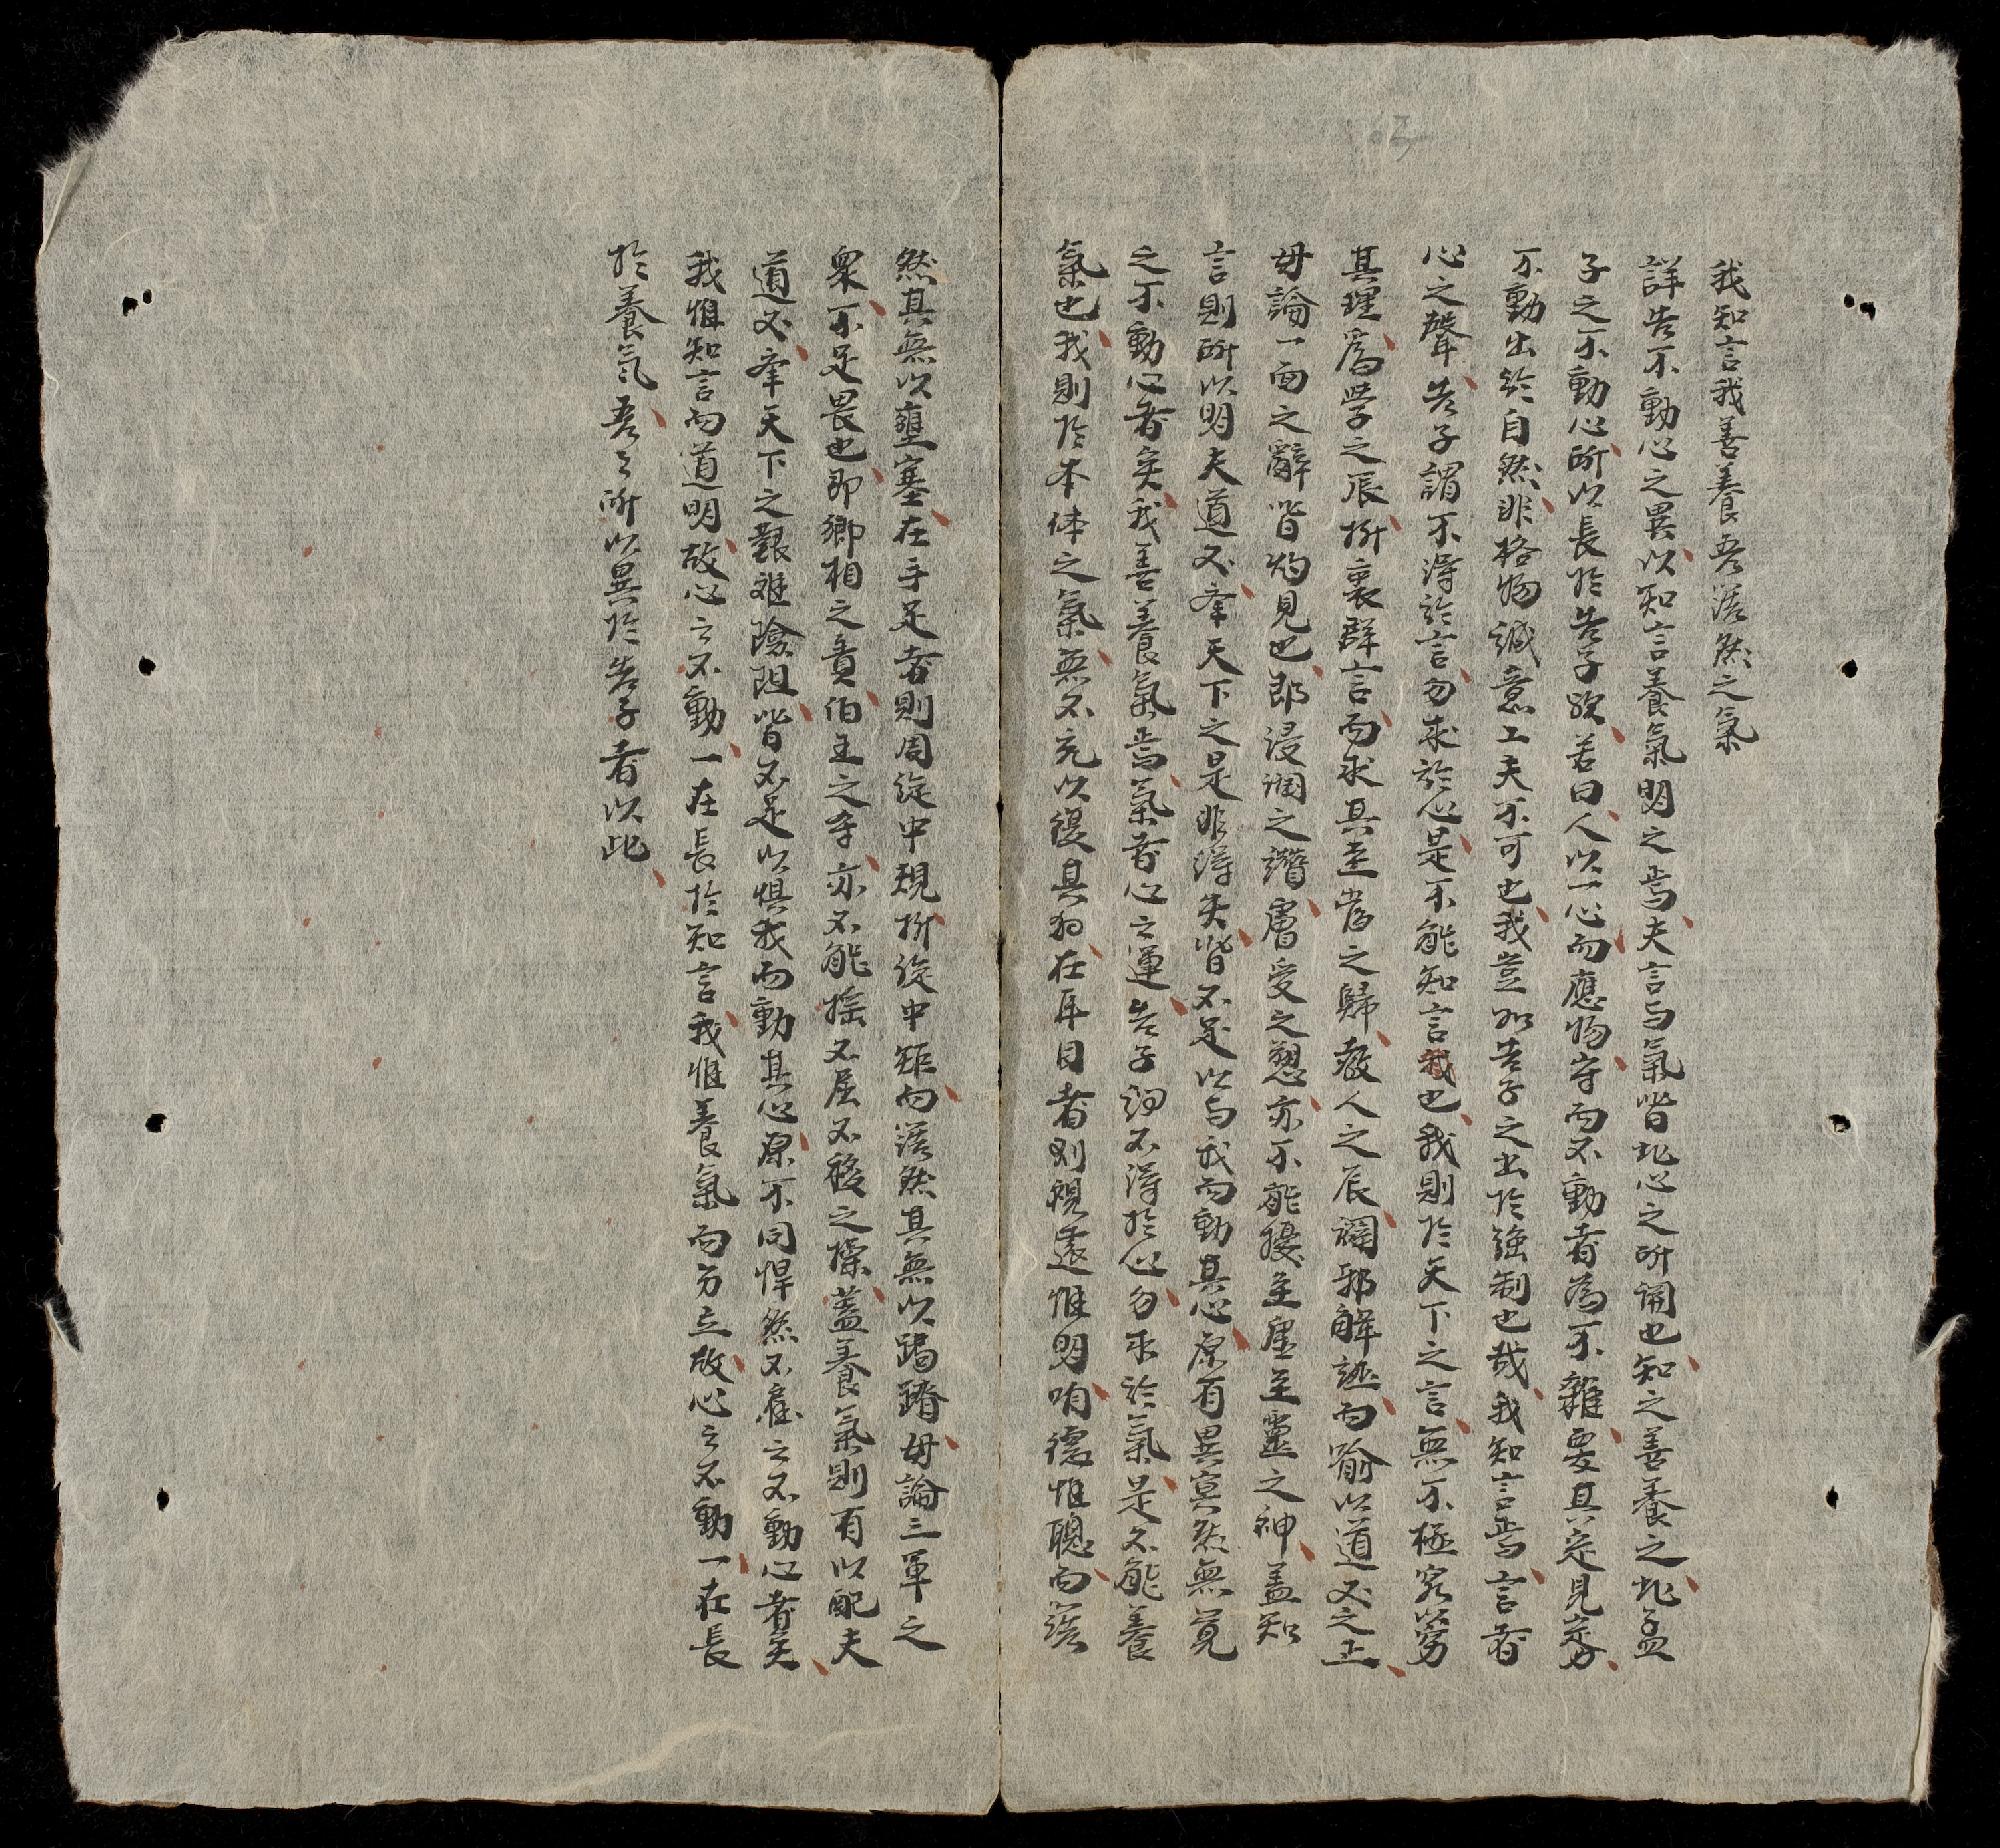 我知言我善養吾浩然之氣
詳告不動心之異以知言養氣明之焉夫言与氣皆心之所開也知之善養之孟
子之不動心所以長於告子欤若曰人以一心而應物守而不動者為不難要其定見
不動出於自然非格物誠意工夫不可也我豈如告子之出於強制也哉我知言焉言者
心之聲告子謂不得於言勿求於心是不能知言我也我則於天下之言無不極究
其理為學之辰折衷群言而求其至當之歸教人之辰闢邪解誣而喻以道义之正
毋論一面之辭皆灼見也即浸潤之譖膚受之愬亦不能擾至虛至靈之神盖知
言則所以明夫道义夆天下之是非得失皆不足以与我而動其心原有異冥然無覓
之不動心者矣我善養氣焉氣者心之運告子謂不得於心勿求於氣是不能養
氣也我則於本体之氣無不充以復其初在耳目者則視遠惟明听德惟聰而浩
然其無以壅塞在手足者則周旋中規折旋中矩而浩然其無以蹋蹐毋論三軍之
衆不足畏也即鄉相之責伯王之夆亦不能搖不屈不移之操盖養氣則有以配夫
道义夆天下之艱难險阻皆不足以惧我而動其心原不同悍然不雇之不動心者矣
我惟知言而道明故心之不動一在長於知言我惟養氣而立故心之不動一在長
於養氣吾之所以異於告子者以此